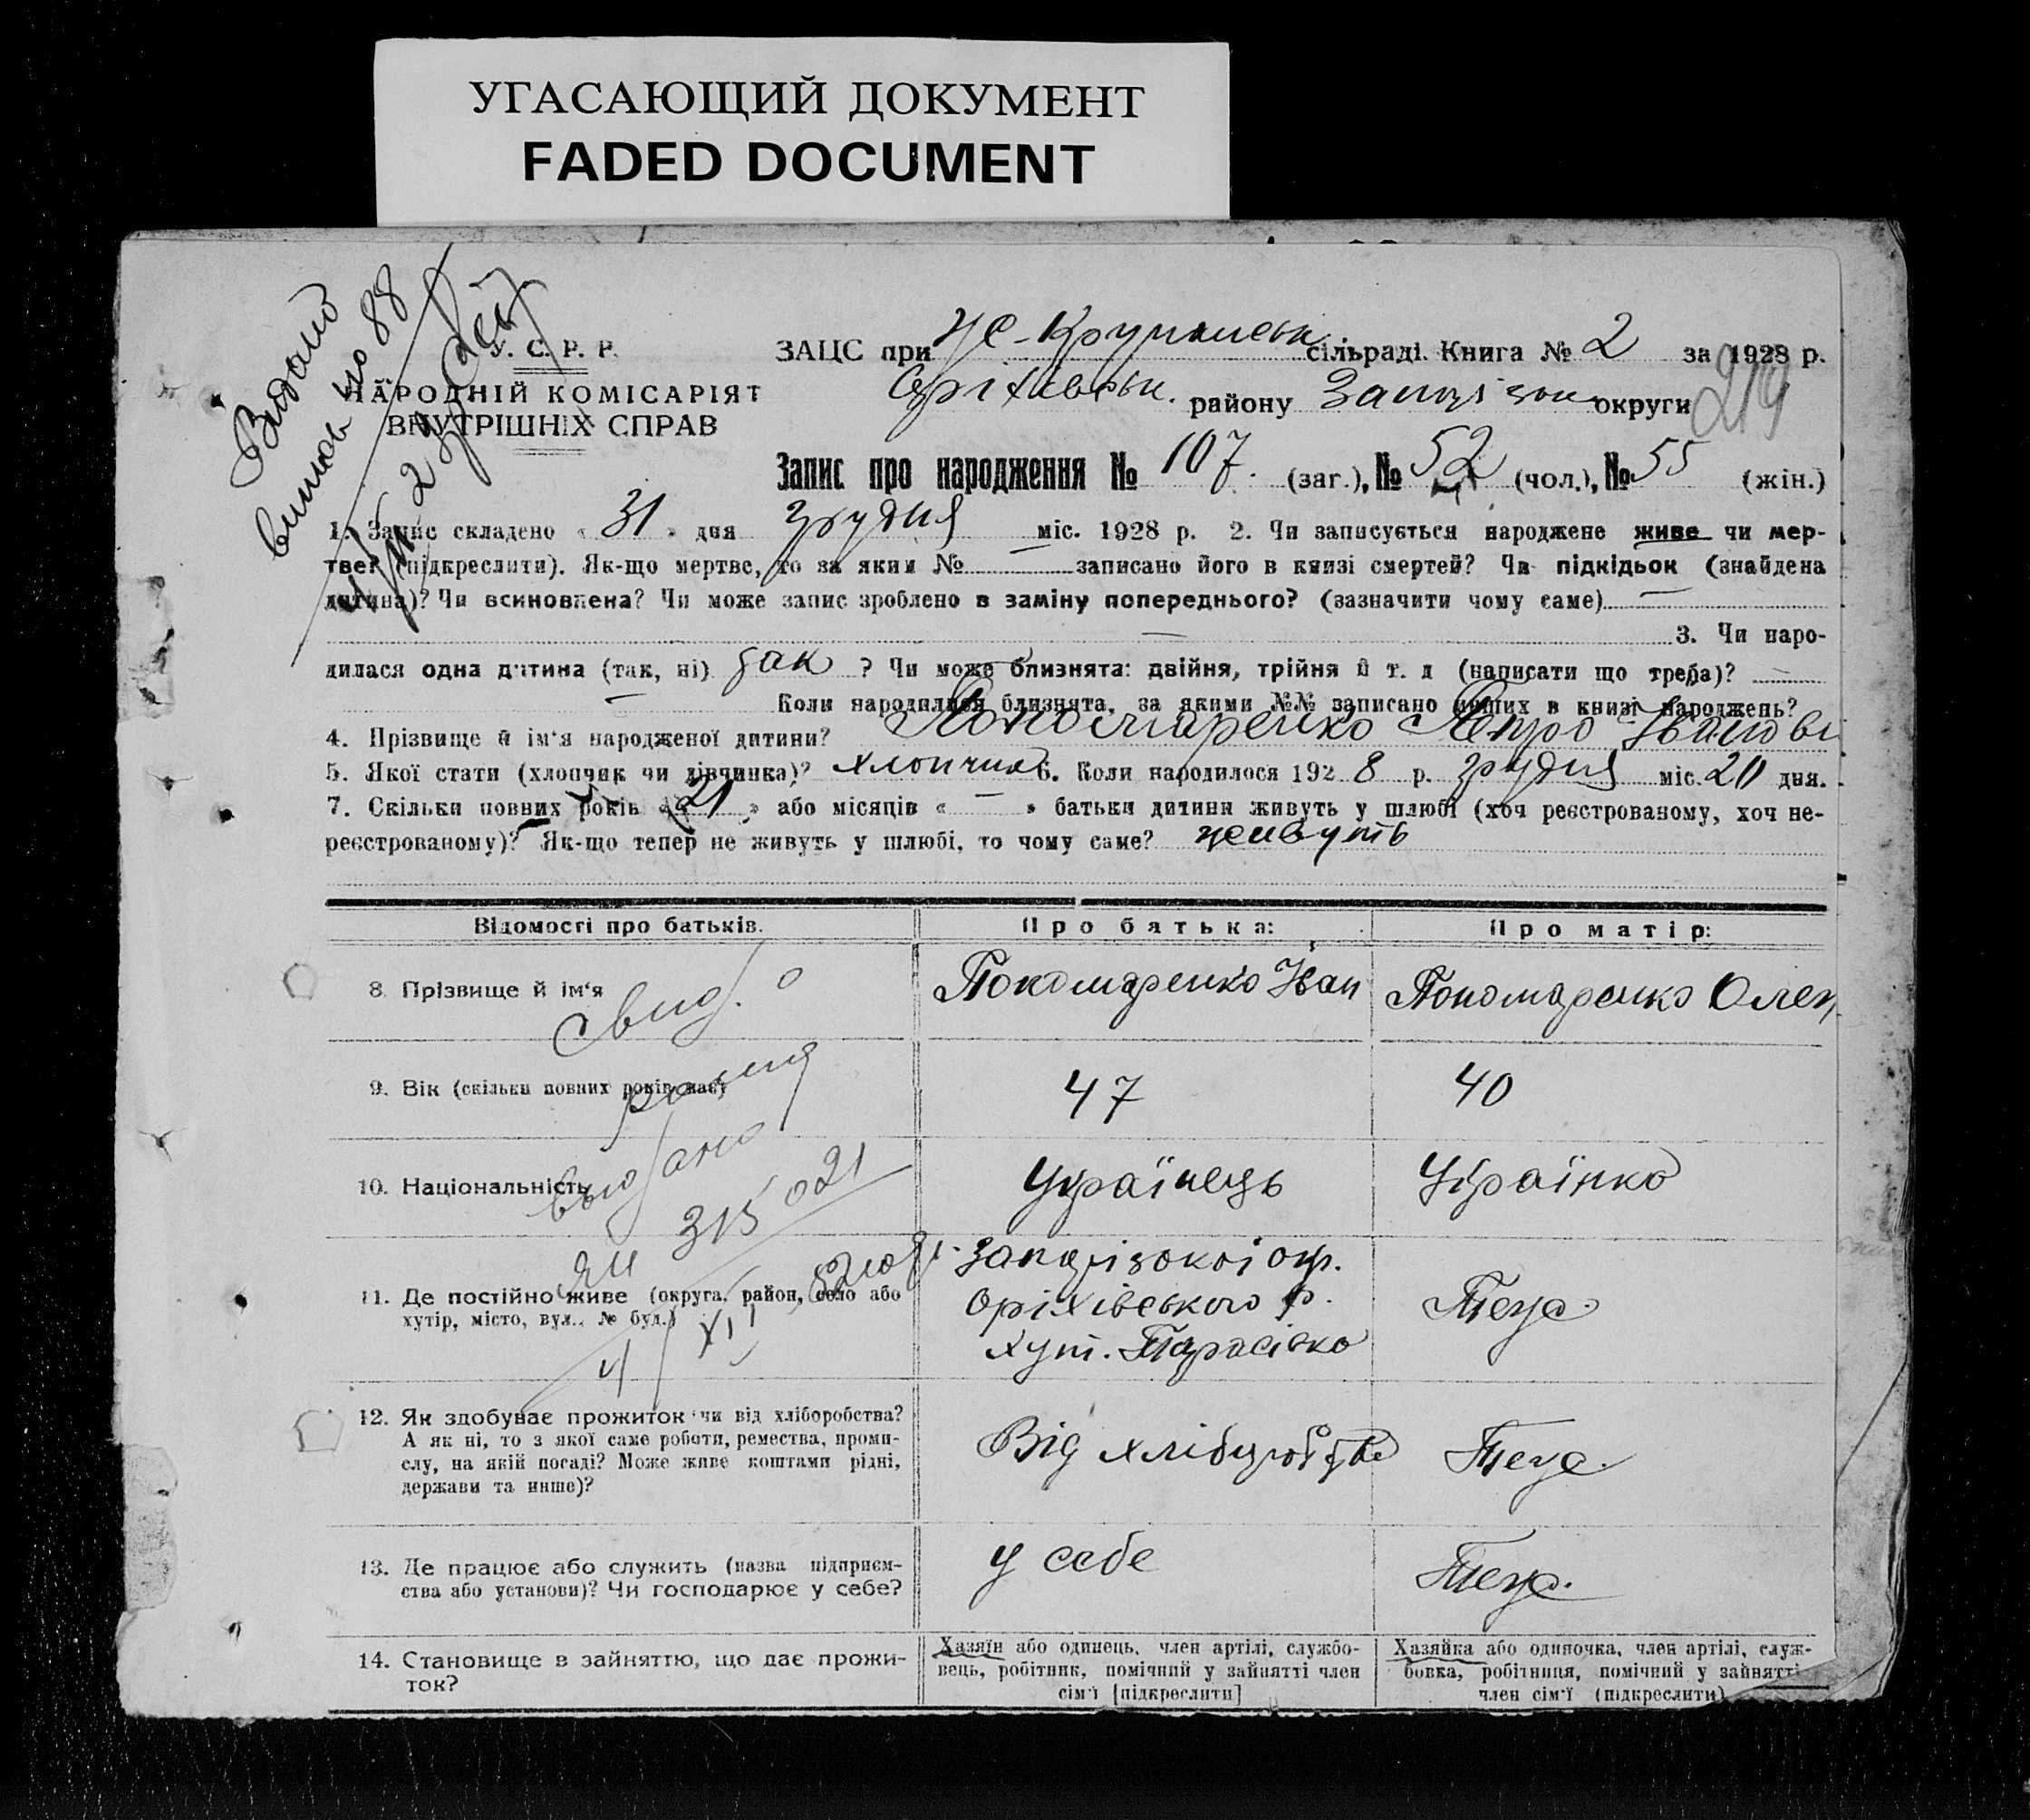 УГАСАЮЩИЙ ДОКУМЕНТ
FADED DOCUMENT
Видано
У. С. Р. Р.
НАРОДНІЙ КОМІСАРІЯТ
ВНУТРІШНІХ СПРАВ
ЗАЦС при сільраді. Книга № 2 за 1928 р.
Оріхівськ. району округи
219
Запис про народження № 107. (заг.), № 52 (чол.), № 55 (жін.)
1. Запис складено « 31 » дня грудня міс. 1928 р. 2. Чи записується народжене живе чи мер-
тве? (підкреслити). Як-що мертве, то за яким № — записано його в книзі смертей? Чи підкідьок (знайдена
дитина)? Чи всиновлена? Чи може запис зроблено в заміну попереднього? (зазначити чому саме) —
— 3. Чи наро-
дилася одна дитина (так, ні) так ? Чи може близнята: двійня, трійня й т. д (написати що треба)? —
— Коли народилися близнята, за якими №№ записано инших в книзі народжень?
4. Прізвище й ім'я народженої дитини? Пономаренко Петро Іванови
5. Якої стати (хлопчик чи дівчинка)? хлопчик 6. Коли народилося 1928 р. грудня міс. 20 дня.
7. Скільки повних років « 21 » або місяців « — » батьки дитини живуть у шлюбі (хоч реєстрованому, хоч не-
реєстрованому)? Як-що тепер не живуть у шлюбі, то чому саме? живуть
Відомості про батьків. Про батька: Про матір:
8. Прізвище й ім'я Пономаренко Іван Пономаренко Олен
свид. о
9. Вік (скільки повних років має) 47 40
10. Національність Українець Українка
315021
11. Де постійно живе (округа, район, село або
хутір, місто, вул., № буд.)
Оріхівського р.
хут. Тарасівка
Теж.
12. Як здобуває прожиток чи від хліборобства?
А як ні, то з якої саме роботи, ремества, проми-
слу, на якій посаді? Може живе коштами рідні,
держави та инше)?
Від хліборобства Теж.
13. Де працює або служить (назва підприєм-
ства або установи)? Чи господарює у себе?
у себе Теж.
14. Становище в зайняттю, що дає прожи-
ток?
Хазяїн або одинець, член артілі, службо-
вець, робітник, помічний у зайнятті член
сім'ї [підкреслити]
Хазяйка або одиночка, член артілі, служ-
бовка, робітниця, помічний у зайнятті
член сім'ї (підкреслити)